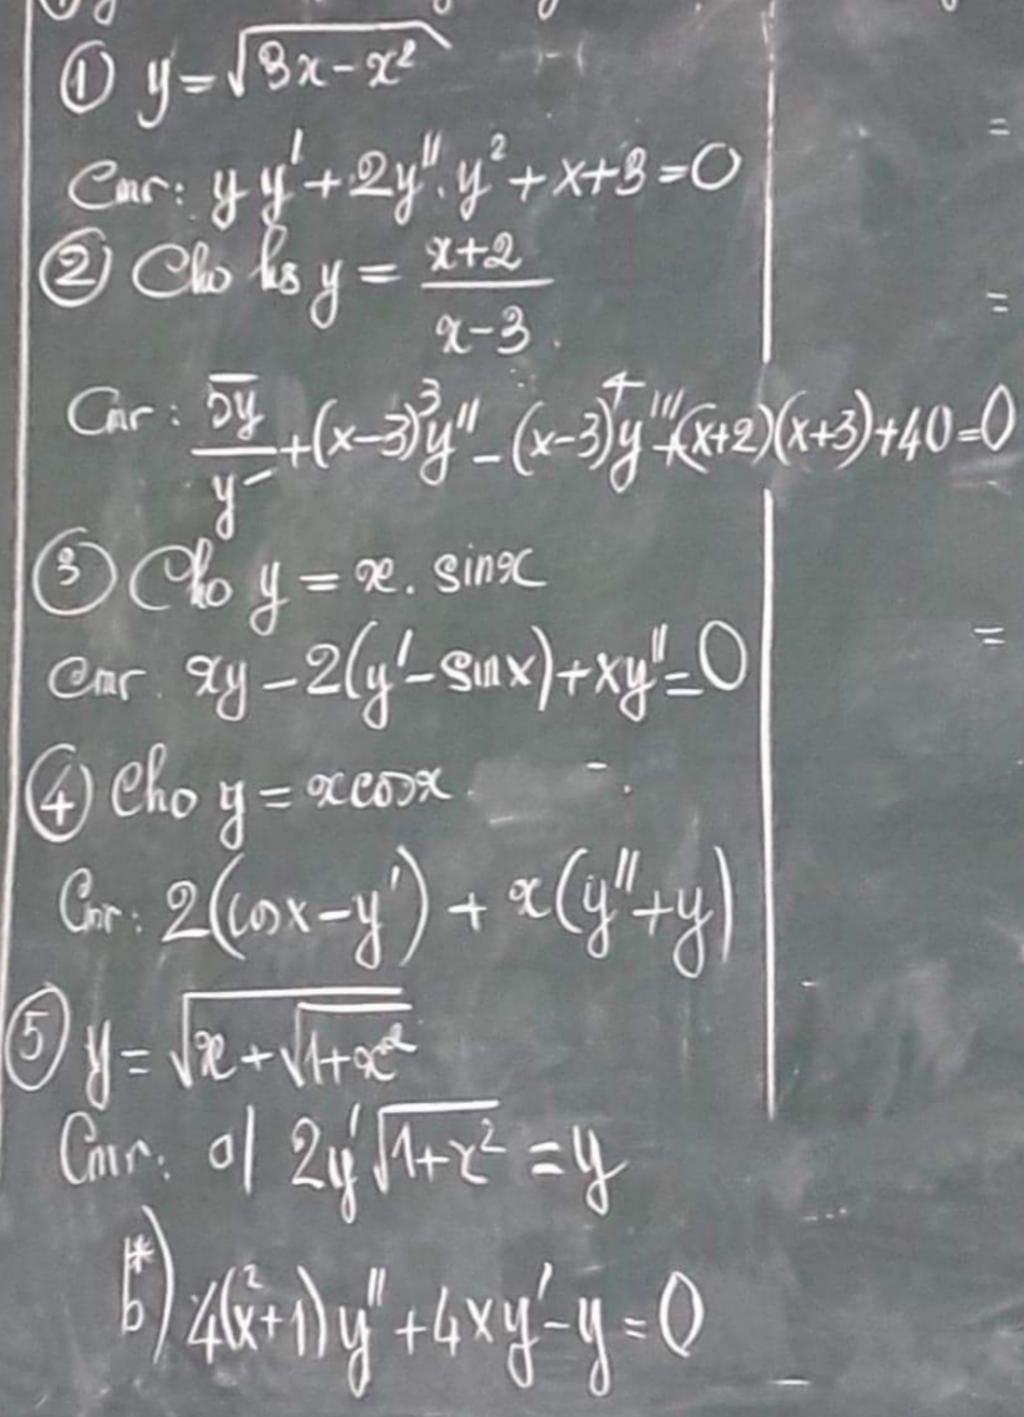 ① y = √(3x - x²)
Cmr: y y' + 2y''. y² + x + 3 = 0
② Cho hs y = (x+2)/(x-3)
Cmr: 5y/y' + (x-3)³y'' - (x-3)⁴y''' + (x+2)(x+3) + 40 = 0
③ Cho y = x. sinx
Cmr. xy - 2(y' - sinx) + xy'' = 0
④ Cho y = xcosx
Cmr: 2(cosx - y') + x(y'' + y)
⑤ y = √(x + √(1+x²))
Cmr: a/ 2y'√(1+x²) = y
b*) 4(x²+1)y'' + 4xy' - y = 0